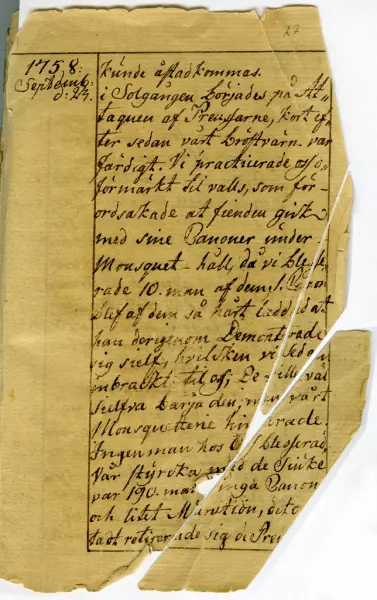 22
1758:
Septbemb:
d: 27.
kunde åstadkommas.
i Solgången börjades på At„
taquen af Preussarne, kort ef„
ter sedan vårt bröstvärn var
färdigt. Vi practicerade oss o„
förmärkt til valls, som för„
ordsakade at fienden gick
med sine Canoner under
Mousquet-håll, då vi blesse„
rade 10. man af dem, 1. Canon
blef af dem så hårt laddad at
han derigenom Demonterade
sig sielf, hvilken vi sedan
inbrackt til oss; De ville väl
sielfva bärja den, men vårt
Mousquetterie hindrade.
Ingen man hos oss blesserad,
Vår styrcka med de siuke
var 190. man, inga Canon
och litet Munition, det
tadt retirerade sig de Pre